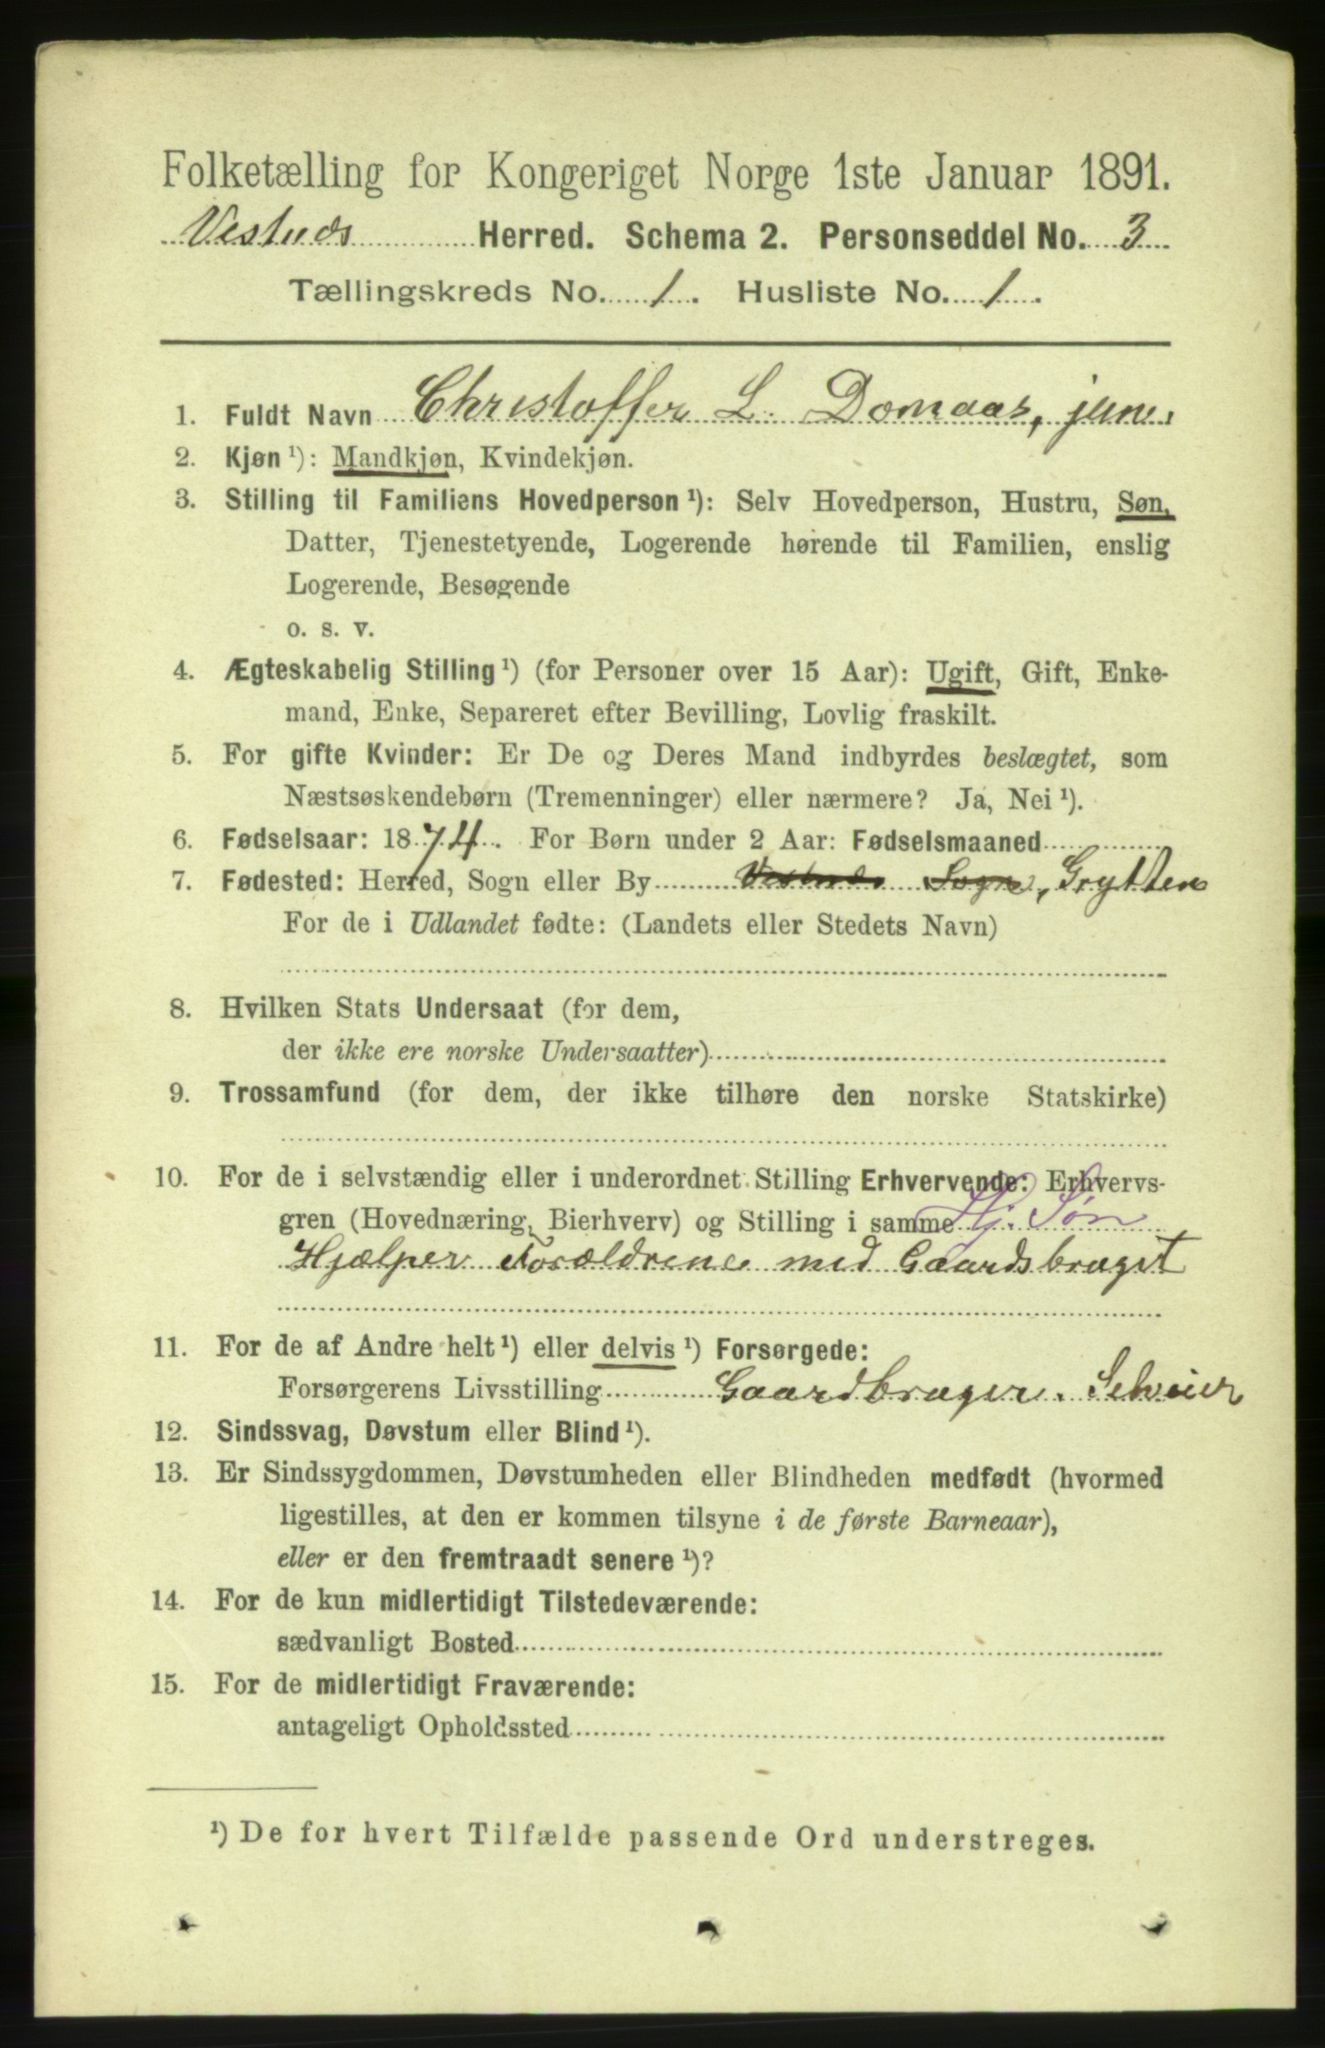 Folketælling for Kongeriget Norge 1ste Januar 1891.
Vestnæs Herred. Schema 2. Personseddel No. 3
Tællingskreds No. 1. Husliste No. 1.
1. Fuldt Navn Christoffer L. Domaas, jun.
2. Kjøn ¹): Mandkjøn, Kvindekjøn.
3. Stilling til Familiens Hovedperson ¹): Selv Hovedperson, Hustru, Søn,
Datter, Tjenestetyende, Logerende hørende til Familien, enslig
Logerende, Besøgende
o. s. v.
4. Ægteskabelig Stilling ¹) (for Personer over 15 Aar): Ugift, Gift, Enke-
mand, Enke, Separeret efter Bevilling, Lovlig fraskilt.
5. For gifte Kvinder: Er De og Deres Mand indbyrdes beslægtet, som
Næstsøskendebørn (Tremenninger) eller nærmere? Ja, Nei ¹).
6. Fødselsaar: 1874. For Børn under 2 Aar: Fødselsmaaned
7. Fødested: Herred, Sogn eller By Vestnæs Sogn, Grytten
For de i Udlandet fødte: (Landets eller Stedets Navn)
8. Hvilken Stats Undersaat (for dem,
der ikke ere norske Undersaatter)
9. Trossamfund (for dem, der ikke tilhøre den norske Statskirke)
10. For de i selvstændig eller i underordnet Stilling Erhvervende: Erhvervs-
gren (Hovednæring, Bierhverv) og Stilling i samme Hj. Søn
Hjælper Forældrene med Gaardsbruget
11. For de af Andre helt ¹) eller delvis ¹) Forsørgede:
Forsørgerens Livsstilling Gaardbruger. Selveier
12. Sindssvag, Døvstum eller Blind ¹).
13. Er Sindssygdommen, Døvstumheden eller Blindheden medfødt (hvormed
ligestilles, at den er kommen tilsyne i de første Barneaar),
eller er den fremtraadt senere ¹)?
14. For de kun midlertidigt Tilstedeværende:
sædvanligt Bosted
15. For de midlertidigt Fraværende:
antageligt Opholdssted
¹) De for hvert Tilfælde passende Ord understreges.